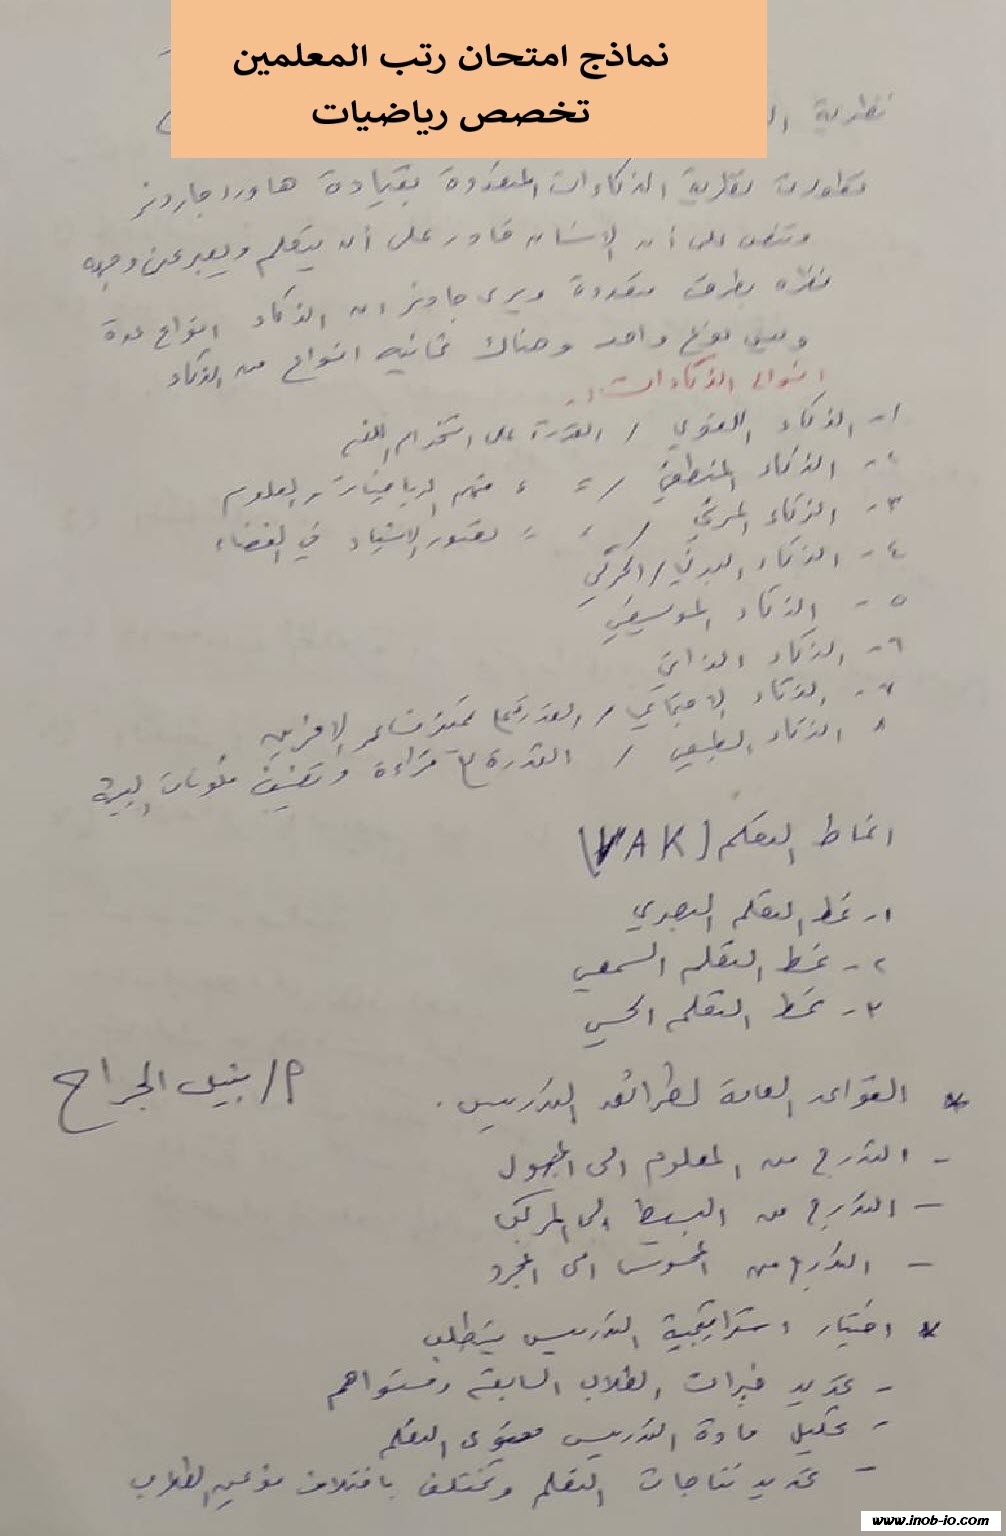 نماذج امتحان رتب المعلمين
تخصص رياضيات
نظرية
تطورت نظرية الذكاءات المتعددة بقيادة هاورد جاردنر
وتنص على أن الإنسان قادر على أن يتعلم ويعبر عن وجهه
نظره بطرق متعددة ويرى جاردنر ان الذكاء انواع عدة
وليس نوع واحد وهناك ثمانيه انواع من الذكاء
انواع الذكاءات :
١- الذكاء اللغوي / القدرة على استخدام اللغه
٢- الذكاء المنطقي / = = فهم الرياضيات والعلوم
٣- الذكاء المرئي / = = تصور الاشياء في الفضاء
٤- الذكاء البدني / الحركي
٥- الذكاء الموسيقي
٦- الذكاء الذاتي
٧- الذكاء الاجتماعي / القدرة على تمييز مشاعر الاخرين
٨ الذكاء الطبيعي / القدرة ع قراءة وتصنيف مكونات البيئة
انماط التعلم (VAK)
١- نمط التعلم البصري
٢- نمط التعلم السمعي
٣- نمط التعلم الحسي
* القواعد العامة لطرائق التدريس .
م/ نبيل الجراح
- التدرج من المعلوم الى المجهول
- التدرج من البسيط الى المركب
- التدرج من المحسوس الى المجرد
* اختيار استراتيجية التدريس يتطلب
- تحديد خبرات الطلاب السابقة ومستواهم
- تحليل مادة التدريس محتوى التعلم
- تحديد نتاجات التعلم وتختلف باختلاف نوعين الطلاب
www.inob-io.com